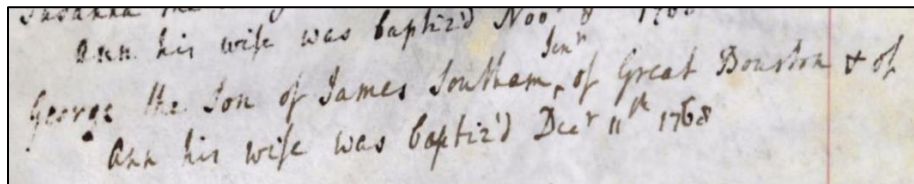 Susanna the
Ann his wife was baptiz'd Nov.r 8 1768
George the Son of James Southam Sen.r of Great Bourton & of
Ann his wife was baptiz'd Dec.r 11th 1768